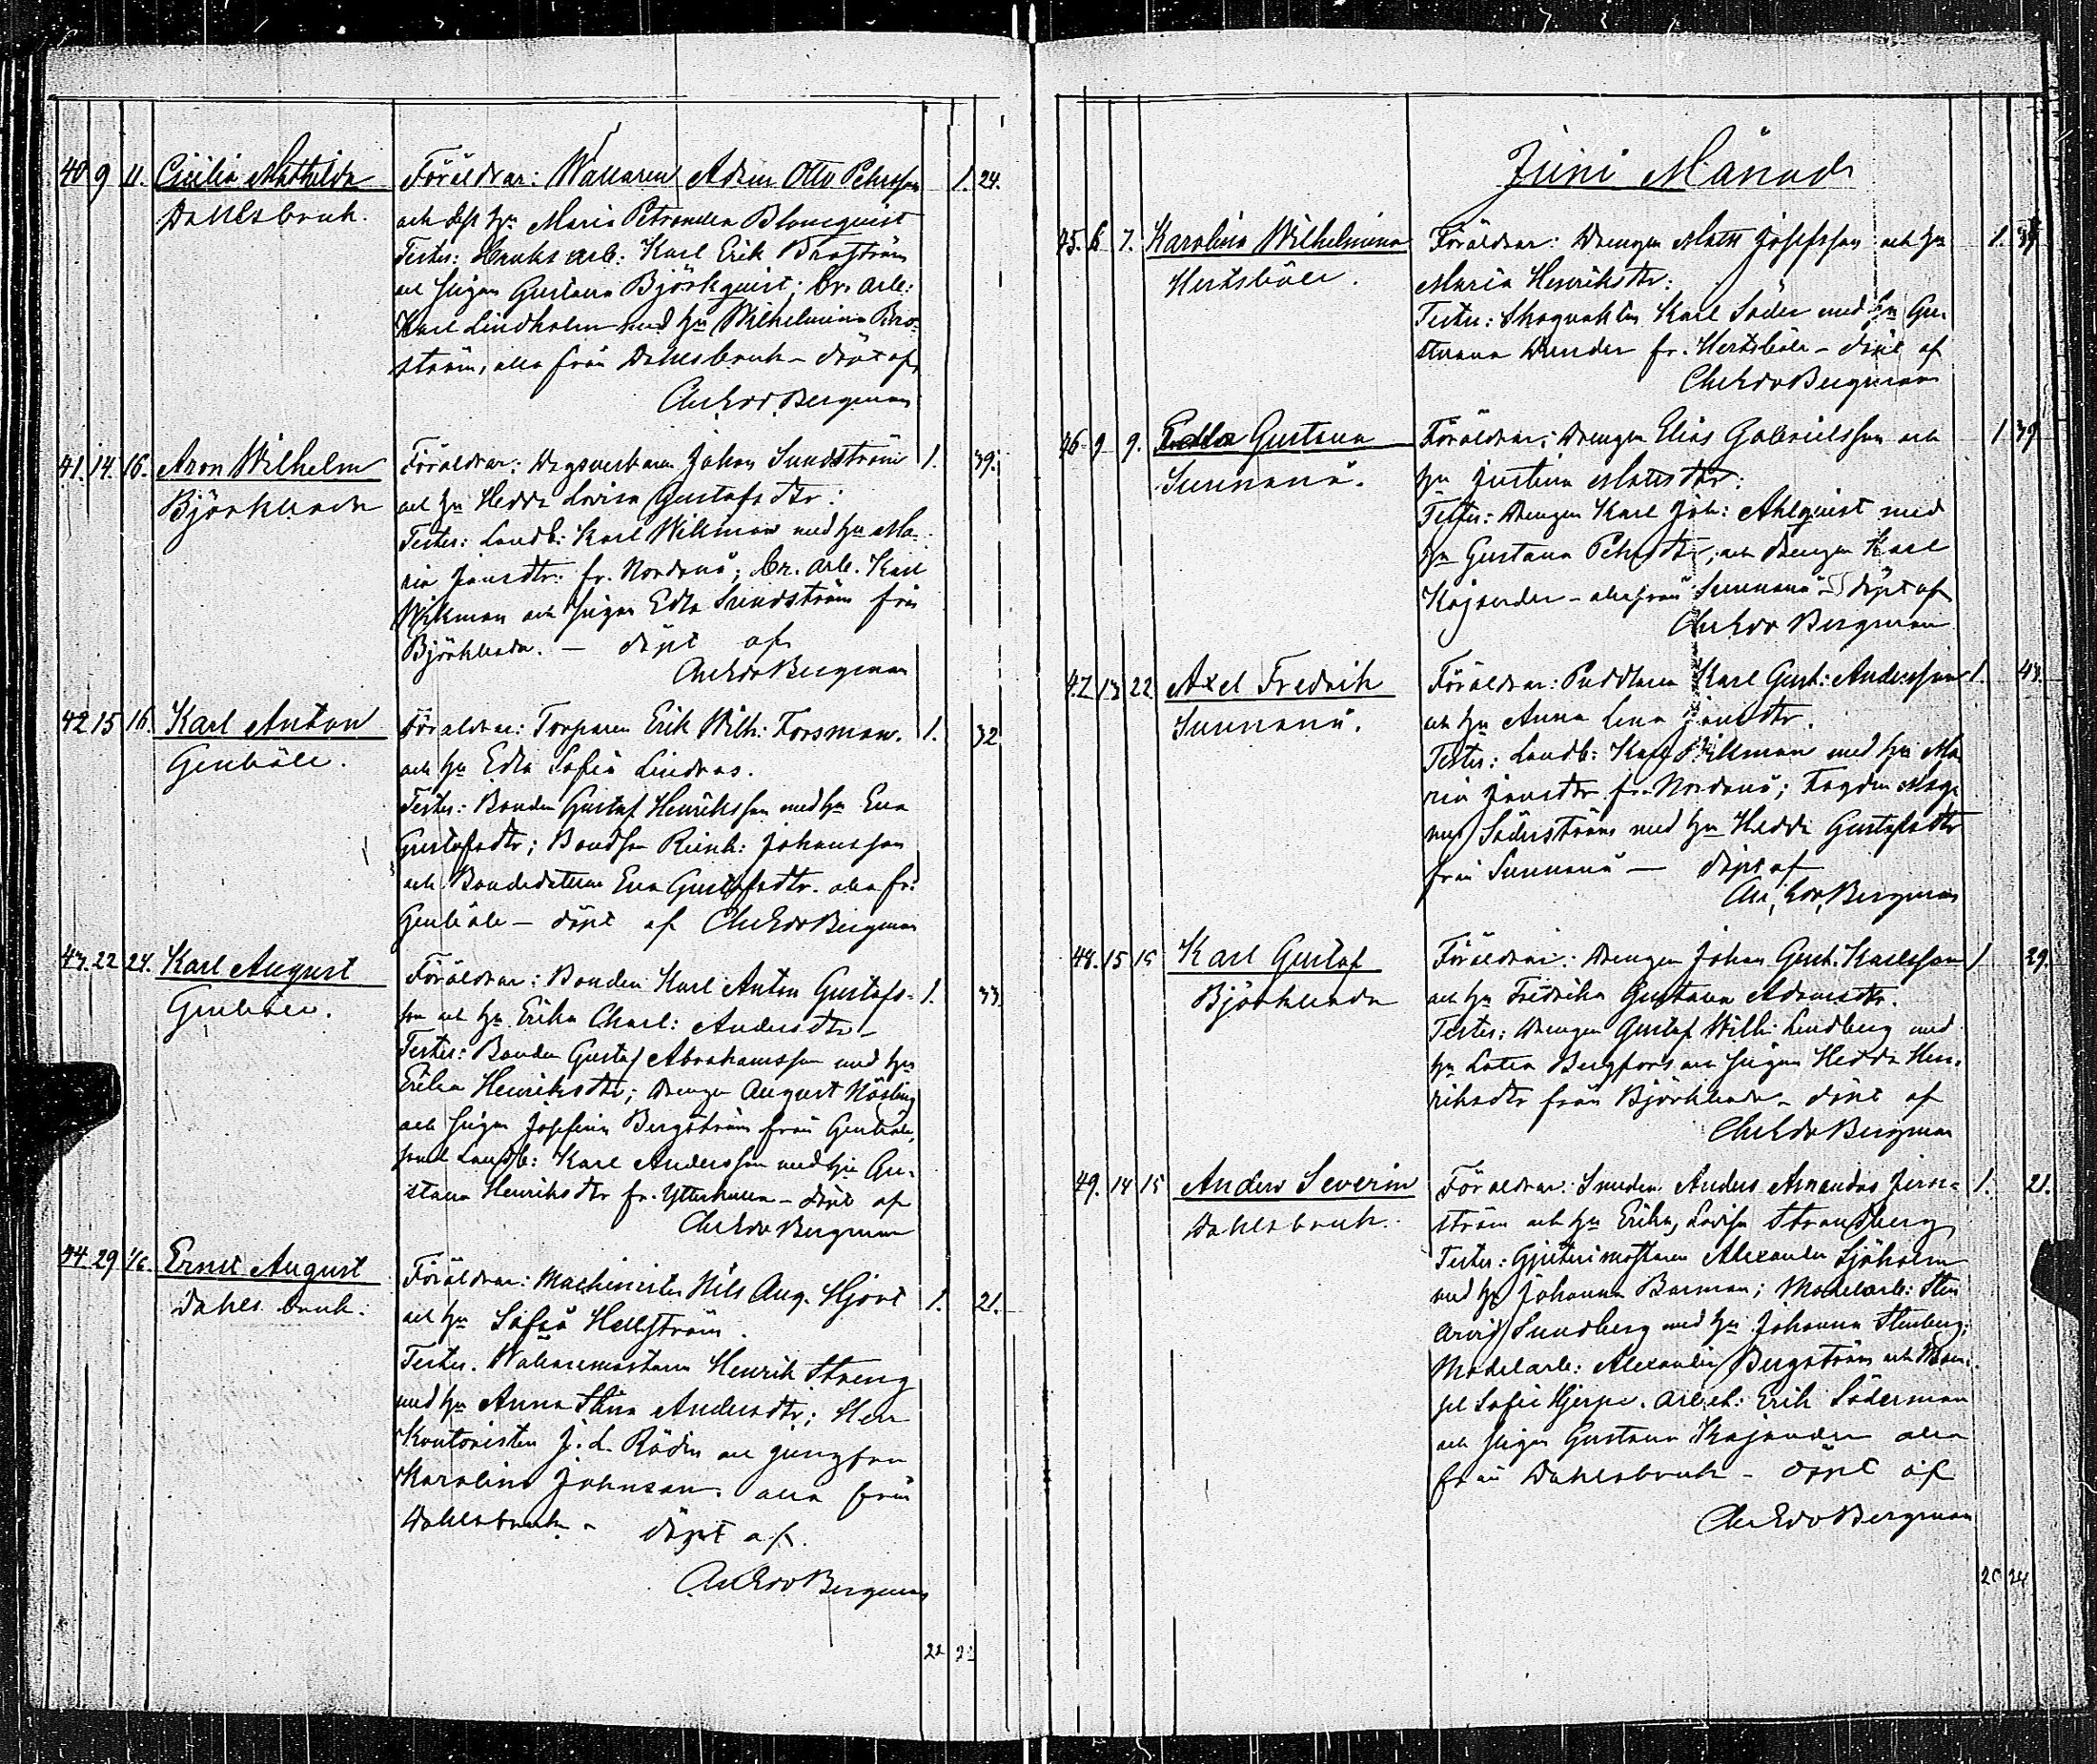 40 9 11. Cecilia Mathilda Föräldrar: Wallaren Adam Otto Pehrsson 1. 24.
Dahlsbruk. och dess hu Maria Petronella Blomquist
Testes: Bruks arb: Karl Erik Broström
och pigan Gustava Björkquist; Br. arb:
Karl Lindholm med hu Wilhelmina Bro-
ström, alla från Dahlsbruk – döpt af
Chr Edv. Bergman
41. 14. 16. Aron Wilhelm Föräldrar: Dagsverkaren Johan Sundström 1. 39.
Björkboda och hu Hedda Lovisa Gustafsdtr:
Testes: Landb: Karl Wikman med hu Ma-
ria Jansdtr: fr. Nordanå; Br. arb. Karl
Wikman och pigan Edla Sundström från
Björkboda. – döpt af
Chr Edv Bergman
42 15 16. Karl Anton Föräldrar: Torparen Erik Wilh: Forsman. 1. 32
Genböle. och hu Edla Sofia Lindroos.
Testes: Bonden Gustaf Henriksson med hu Eva
Gustafsdtr; Bondson Reinh: Johansson
och Bondedottren Eva Gustafsdtr. alla fr:
Genböle – döpt af Chr Edv Bergman
43. 22 24. Karl August Föräldrar: Bonden Karl Anton Gustafs- 1. 33.
Genböle. son och hu Erika Charl: Andersdtr –
Testes: Bonden Gustaf Abrahamsson med hu
Erika Henriksdtr; drengen August Nösling
och pigan Josefina Bergström från Genböle,
samt Landb: Karl Andersson med hu Gu-
stava Henriksdtr fr. Ytterkulla – döpt af
Chr Edv Bergman
44 29 1/6. Ernst August Föräldrar: Machinisten Nils Aug. Hjort 1. 21.
Dahls bruk. och hu Sofia Hellström.
Testes. Wallaremästaren Henrik Streng
med hu Anna Stina Andersdtr; Herr
Kontoristen J. L. Rådin och jungfru
Karolina Johnson. alla från
Dahlsbruk – döpt af
Chr Edv Bergman
22 22
Juni Månad
45. 6 7. Karolina Wilhelmina Föräldrar: Drengen Mats Josefsson och hu 1. 37
Hertsböle. Maria Henriksdtr:
Testes: Skogvakten Karl Söder med hu Gu-
stava fr. Hertsböle – döpt af
Chr Edv Bergman
46 9 9. Gustava Föräldrar: Drengen Elias Gabrielsson och 1 39
Sunnanå. hu Justina Matsdtr:
Testes: Drengen Karl Joh: Ahlquist med
hu Gustava Pehrsdtr, och drengen Karl
Kajander – alla från Sunnanå – döpt af
Chr Edv Bergman
47 13 22 Axel Fredrik Föräldrar: Puddlaren Karl Gust: Andersson 1. 43.
Sunnanå. och hu Anna Lena Jansdtr.
Testes: Landb: Karl Wikman med hu Ma
ria Jansdtr fr. Nordanå; Fogden Mag-
nus Söderström med hu Hedda Gustafsdtr
från Sunnanå – döpt af
Chr. Edv. Bergman
48. 15 15 Karl Gustaf Föräldrar: Drengen Johan Gust. Karlsson 1 29.
Björkboda och hu Fredrika Gustava Adamsdtr.
Testes: Drengen Gustaf Wilh: Lindberg med
hu Bergfors och pigan Hedda Hen-
riksdtr från Björkboda – döpt af
Chr Edv Bergman
49. 14 15 Anders Severin Föräldrar: Smeden Anders Amandus Jern- 1. 21.
Dahlsbruk. ström och hu Erika Lovisa Strandberg
Testes: Gjuterimästaren Alexander Sjöholm
med hu Johanna Barman; Modelarb: Sten
Arvid Sundberg med hu Johanna Stenberg;
Modelarb: Alexander Bergström och Mam-
sel Sofie Hjerpe. Arbet: Erik Söderman
och pigan Gustava Kajander alla
från Dahlsbruk – döpt af
Chr Edv Bergman
25 24